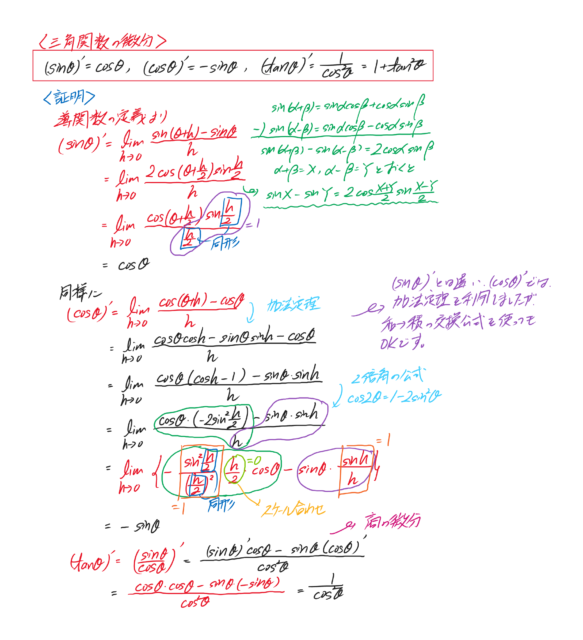 〈三角関数の微分〉
(sinθ)′ = cosθ, (cosθ)′ = −sinθ, (tanθ)′ = 1/cos²θ = 1+tan²θ
〈証明〉
導関数の定義より
(sinθ)′ = lim h→0 (sin(θ+h)−sinθ)/h
= lim h→0 (2cos(θ+h/2)sin h/2)/h
= lim h→0 (cos(θ+h/2) sin h/2)/(h/2) = 1
同形
= cosθ
sin(α+β) = sinαcosβ+cosαsinβ
−) sin(α−β) = sinαcosβ−cosαsinβ
sin(α+β)−sin(α−β) = 2cosαsinβ
α+β=X, α−β=Yとおくと
sinX−sinY = 2cos (X+Y)/2 sin (X−Y)/2
同様に
(cosθ)′ = lim h→0 (cos(θ+h)−cosθ)/h
加法定理
= lim h→0 (cosθcosh−sinθsinh−cosθ)/h
= lim h→0 (cosθ(cosh−1)−sinθ·sinh)/h
= lim h→0 (cosθ·(−2sin² h/2)−sinθ·sinh)/h
(sinθ)′と口違い、(cosθ)′では
加法定理を利用しましたが
和→積の変換公式を使っても
OKです。
2倍角の公式
cos2θ=1−2sin²θ
= lim h→0 {− (sin² h/2)/(h/2)² · h/2 · cosθ − sinθ · sinh/h}
=1
=0
=1
同形
スケール合わせ
= −sinθ
商の微分
(tanθ)′ = (sinθ/cosθ)′ = ((sinθ)′cosθ − sinθ(cosθ)′)/cos²θ
= (cosθ·cosθ − sinθ(−sinθ))/cos²θ = 1/cos²θ